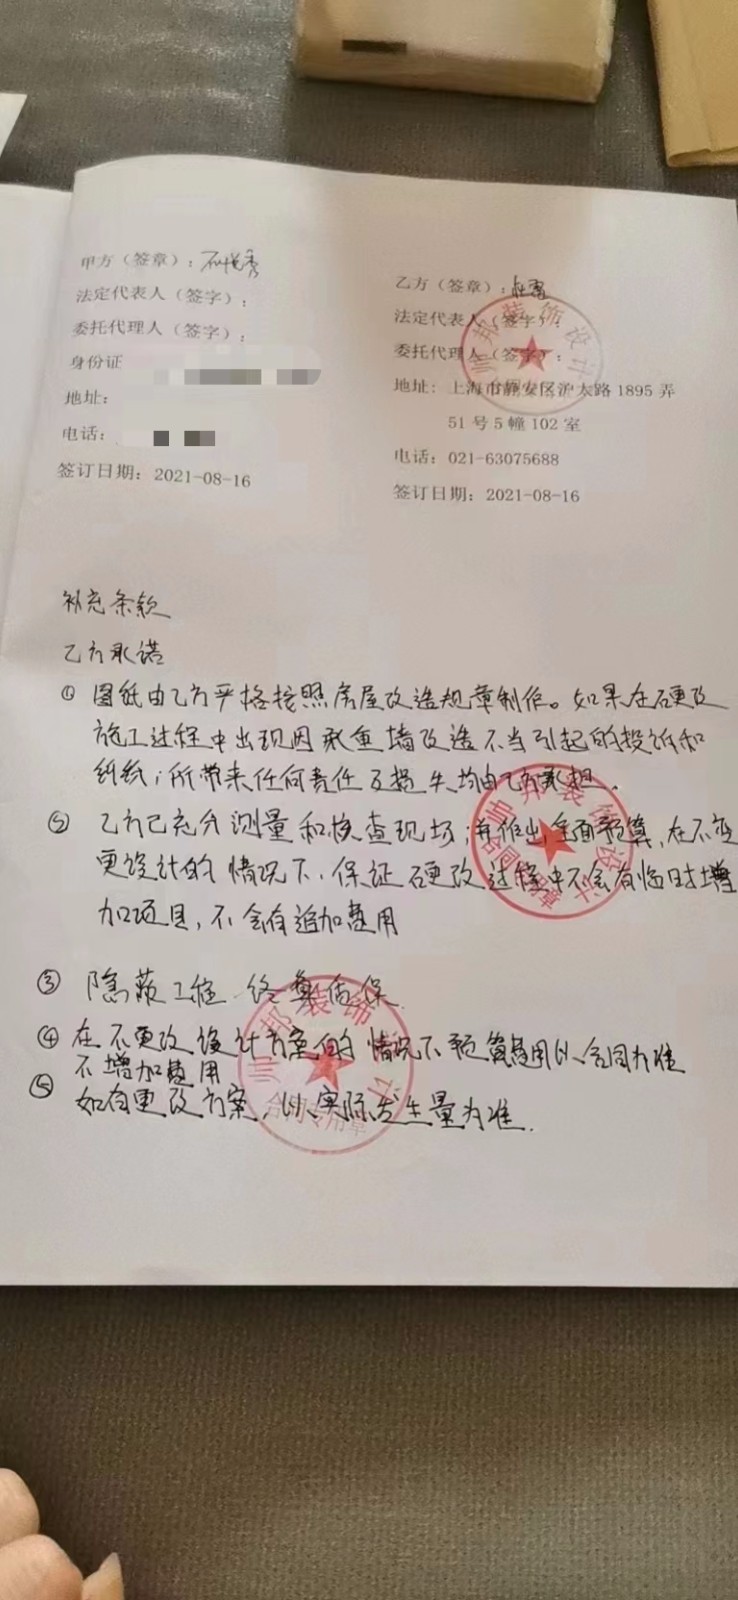 甲方（签章）：
法定代表人（签字）：
委托代理人（签字）：
身份证
地址：
电话：
签订日期：2021-08-16
乙方（签章）：
法定代表人（签字）：
委托代理人（签字）：
地址：上海市静安区沪太路1895弄
51号5幢102室
电话：021-63075688
签订日期：2021-08-16
帅邦装饰设计
补充条款
乙方承诺
① 图纸由乙方严格按照房屋改造规章制作。如果在硬改
施工过程中出现因承重墙改造不当引起的投诉和
纠纷；所带来任何责任及损失均由乙方承担。
② 乙方已充分测量和检查现场；并作出全面预算，在不变
更设计的情况下，保证硬改过程中不会有临时增
加项目，不会有追加费用
帅邦装饰设计
合同专用章
③ 隐蔽工程 终身质保
④ 在不更改设计方案的情况下预算费用以合同为准
不增加费用
⑤ 如有更改方案，以实际发生量为准.
帅邦装饰设计
合同专用章